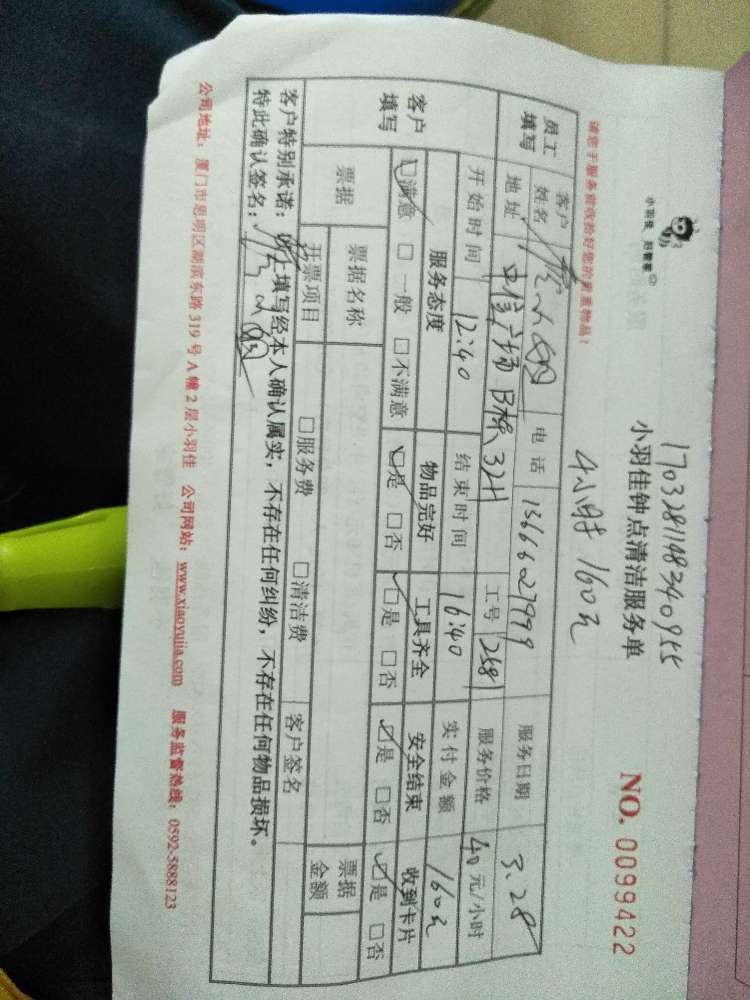 小羽佳 好管家
1703281148340955
小羽佳钟点清洁服务单
NO. 0099422
4小时 160元
请您于服务前收拾好您的贵重物品！
员工填写
客户姓名
电话 13666027999
服务日期 3.28
地址 立信广场B栋3211
工号 2581
服务价格 40元/小时
开始时间 12:40
结束时间 16:40
实付金额 160元
客户填写
服务态度 物品完好 工具齐全 安全结束 收到卡片
☑满意 □一般 □不满意 ☑是 □否 ☑是 □否 ☑是 □否 ☑是 □否
票据
票据名称
□服务费 □清洁费
客户签名
票据金额
开票项目
客户特别承诺：以上填写经本人确认属实，不存在任何纠纷，不存在任何物品损坏。
特此确认签名：
公司地址：厦门市思明区湖滨东路319号A幢2层小羽佳 公司网站：www.xiaoyujia.com 服务监督热线：0592-5888123